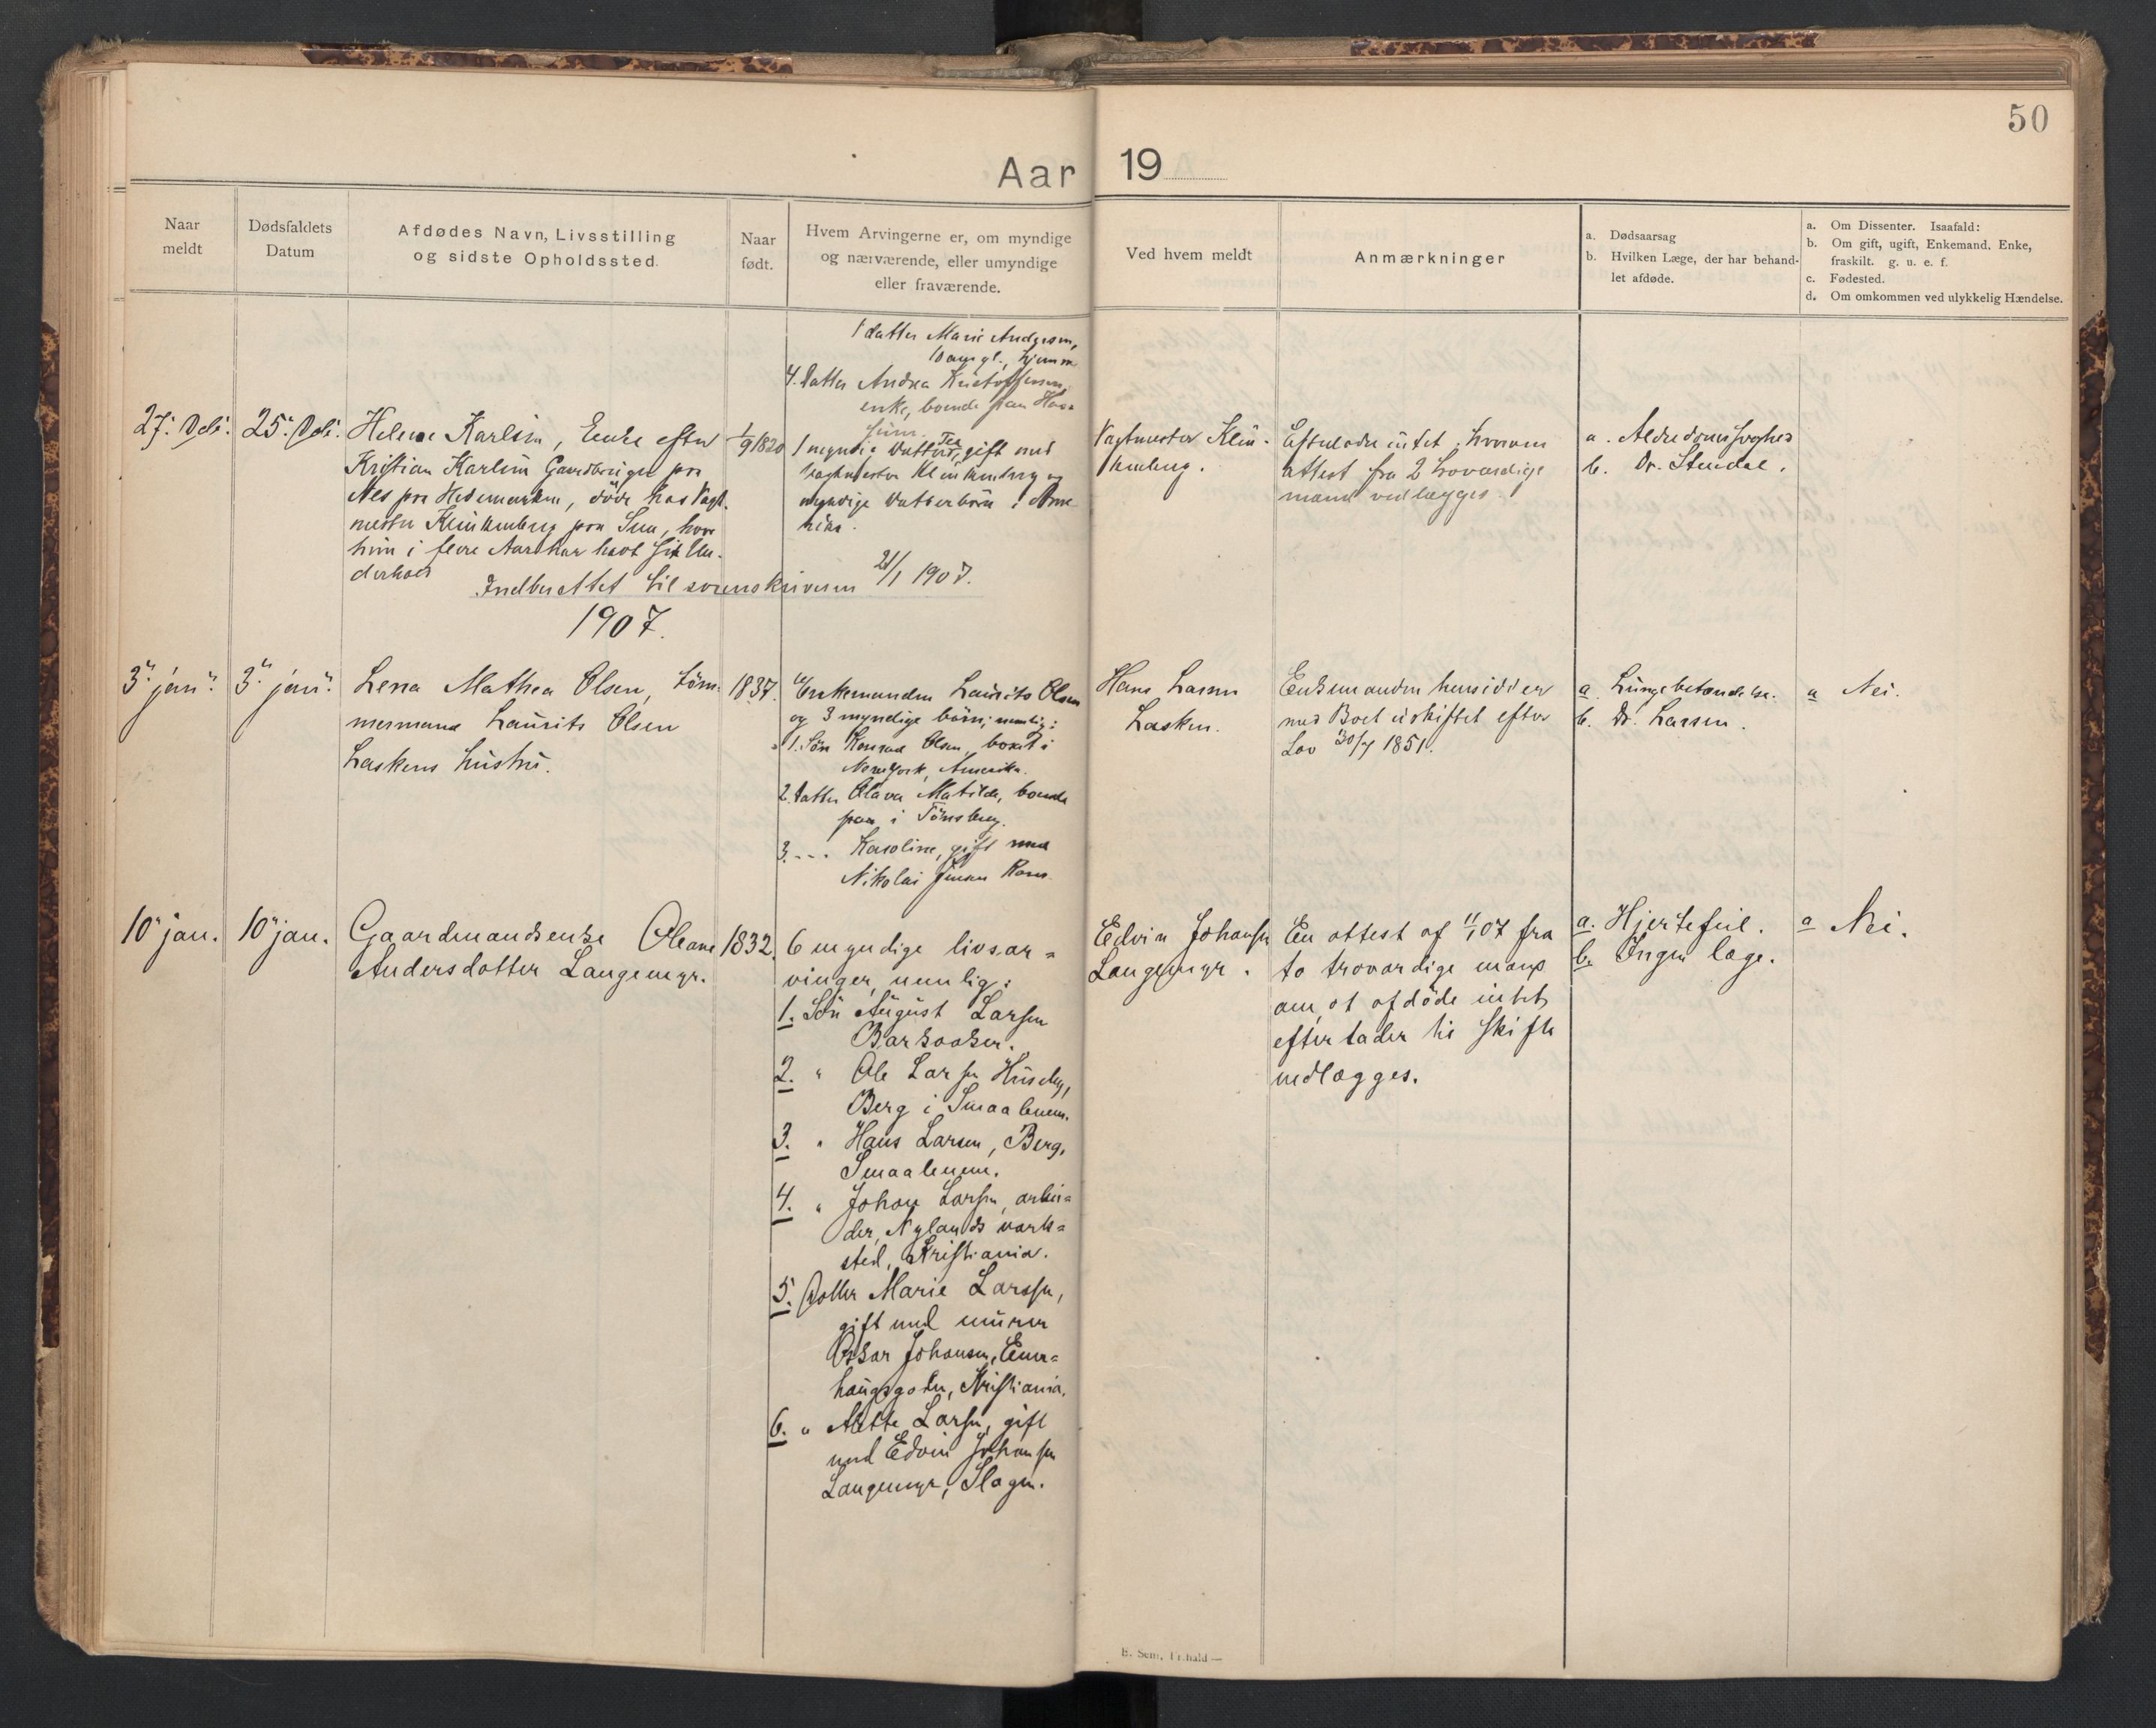 50
Aar 19
Naar
meldt
Dødsfaldets
Datum
Afdødes Navn, Livsstilling
og sidste Opholdssted.
Naar
født.
Hvem Arvingerne er, om myndige
og nærværende, eller umyndige
eller fraværende.
Ved hvem meldt
Anmærkninger
a. Dødsaarsag
b. Hvilken Læge, der har behand-
let afdøde.
a. Om Dissenter. Isaafald:
b. Om gift, ugift, Enkemand, Enke,
fraskilt. g. u. e. f.
c. Fødested.
d. Om omkommen ved ulykkelig Hændelse.
1 datter Marie Andersen,
10 aar gl., hjemme
4. Datter Andrea Kristoffersen,
enke, boende paa
27. Dcb.
25. Dcb.
Helene Karlsen, Enke efter
Kristian Karlsen Gaardbruger paa
Nes paa Hedemarken, døde hos Vagt-
mester Klinkenberg paa Sem, hvor
hun i flere Aar har havt sit Un-
derhold
1/9 1820
1 myndig Datter, gift med
Vagtmester Klinkenberg og
myndige Datterbørn i Ame-
rika.
Vagtmester Klin-
kenberg.
Efterlader intet, hvorom
attest fra 2 troværdige
mænd vedlægges.
a. Alderdomssvaghed
b. Dr. Stendal.
Indberettet til sorenskriveren 21/1 1907.
1907.
3. jan.
3. jan.
Lena Mathea Olsen, Tøm-
mermand Laurits Olsen
Laskens hustru.
1837.
Enkemanden Laurits Olsen
og 3 myndige børn, nemlig:
1. Søn Konrad Olsen, bosat i
New York, Amerika.
2. Datter Olava Matilde, boende
paa i Tønsberg.
3. -- - Karoline, gift med
Nikolai Jensen
Hans Larsen
Lasken.
Enkemanden hensidder
med Boet uskiftet efter
Lov 30/7 1851.
a. Lungebetændelse.
b. Dr. Larsen.
a Nei.
10 jan.
10 jan.
Gaardmandsenke Oleane
Andersdatter Langemyr.
1832.
6 myndige livsar-
vinger, nemlig:
1. Søn August Larsen
Barkaaker.
2. " Ole Larsen Huseby,
Berg i Smaalenene.
3. " Hans Larsen, Berg,
Smaalenene.
4. " Johan Larsen, arbei-
der, Nylands værk-
sted, Kristiania.
5. Datter Marie Larsen,
gift med murer
Oskar Johansen, Ener-
haugsgaten, Kristiania.
6. " Mette Larsen, gift
med Edvin Johansen
Langemyr, Slagen.
Edvin Johansen
Langemyr.
En attest af 11/1 07 fra
to troværdige mænd
om, at afdøde intet
efterlader til skifte
vedlægges.
a. Hjertefeil.
b. Ingen læge.
a Nei.